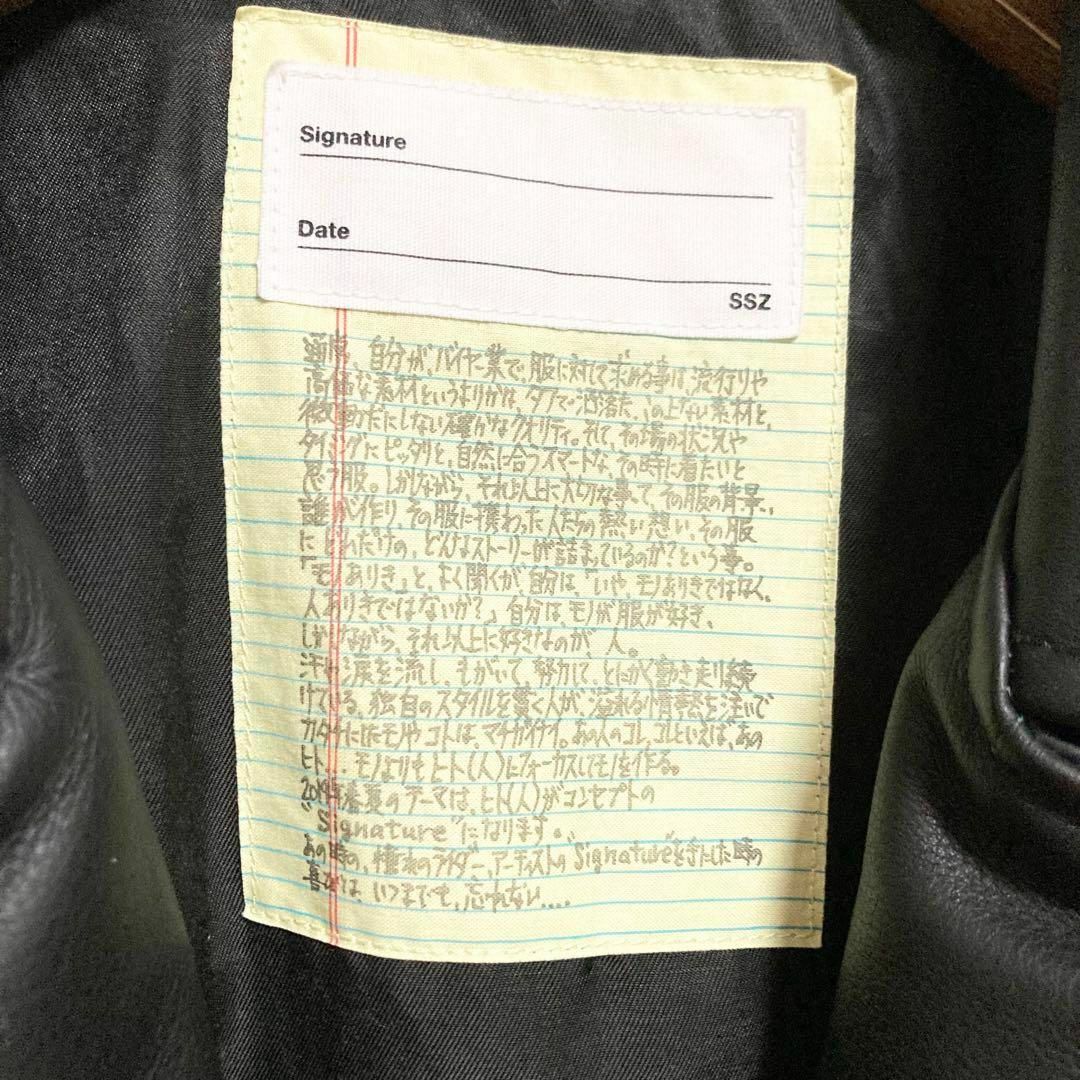 Signature
Date
SSZ
通常、自分が、バイヤー業で、服に対して求める事は、流行りや
高価な素材というよりかは、タフで洒落た、この上ない素材と、
微動だにしない確かなクオリティ。そして、その場の状況や
タイミングにピッタリと、自然に合うスマートな、その時に着たいと
思う服。しかしながら、それ以上に大切な事って、その服の背景、
誰が作り、その服に携わった人たちの熱い想い、その服
にどれだけの、どんなストーリーが詰まっているのか?という事。
「モノありき」と、よく聞くが、自分は、「いや、モノありきではなく、
人ありきではないか?」自分は、モノが服が好き、
しかしながら、それ以上に好きなのが、人。
汗や涙を流し、もがいて、努力して、とにかく動き走り続
けている、独自のスタイルを貫く人が、溢れる情熱を注いで
カタチにしたモノやコトは、マチガイナイ。あの人のコレ、コレといえば、あの
ヒト... モノよりもヒト(人)にフォーカスしてモノを作る。
2019年春夏のテーマは、ヒト(人)がコンセプトの
"Signature"になります。
あの時の、憧れのライダー、アーティストの"Signature"を手にした時の
喜びは、いつまでも、忘れない....